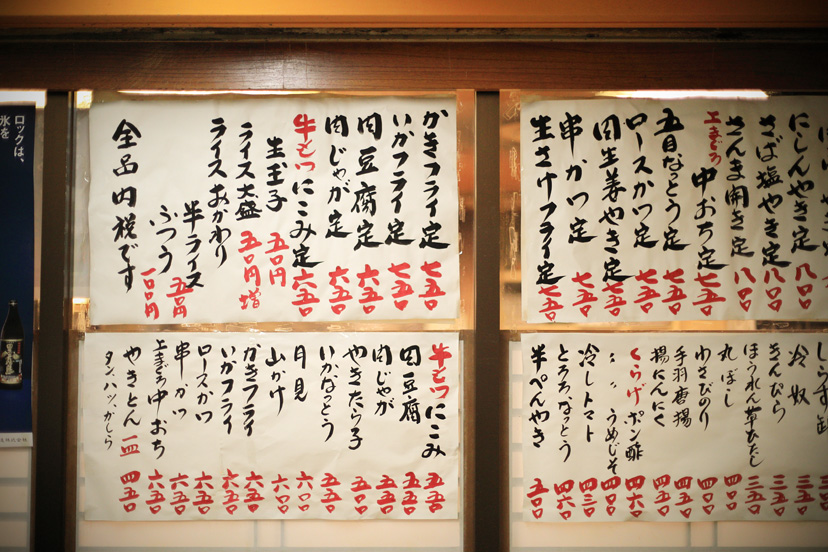 にしんやき定 八〇〇
さば塩やき定 八〇〇
さんま開き定 八〇〇
上まぐろ中おち定 七五〇
五目なっとう定 七五〇
ロースかつ定 七五〇
肉生姜やき定 七五〇
串かつ定 七五〇
生さけフライ定 七五〇
かきフライ定 七五〇
いかフライ定 七五〇
肉豆腐定 六五〇
肉じゃが定 六五〇
牛もつにこみ定 六五〇
生玉子 五〇円
ライス大盛 五〇円増
ライスおかわり
半ライス 五〇円
ふつう 一〇〇円
全品内税です
しらす卸
冷奴 三五〇
きんぴら 三五〇
ほうれん草ひたし 三五〇
丸ぼし 四〇〇
わさびのり 四〇〇
手羽唐揚 四五〇
揚にんにく 四五〇
くらげポン酢 四六〇
〃 うめじそ 四〇〇
冷しトマト 四三〇
とろろなっとう 四六〇
半ぺんやき 五〇〇
牛もつにこみ 五五〇
肉豆腐 五五〇
肉じゃが 五五〇
やきたら子 五五〇
いかなっとう 五五〇
月見 六〇〇
山かけ 六〇〇
かきフライ 六五〇
いかフライ 六五〇
ロースかつ 六五〇
串かつ 六五〇
上まぐろ中おち 六五〇
やきとん 一皿 四五〇
タン、ハツ、かしら
ロックは、
氷を